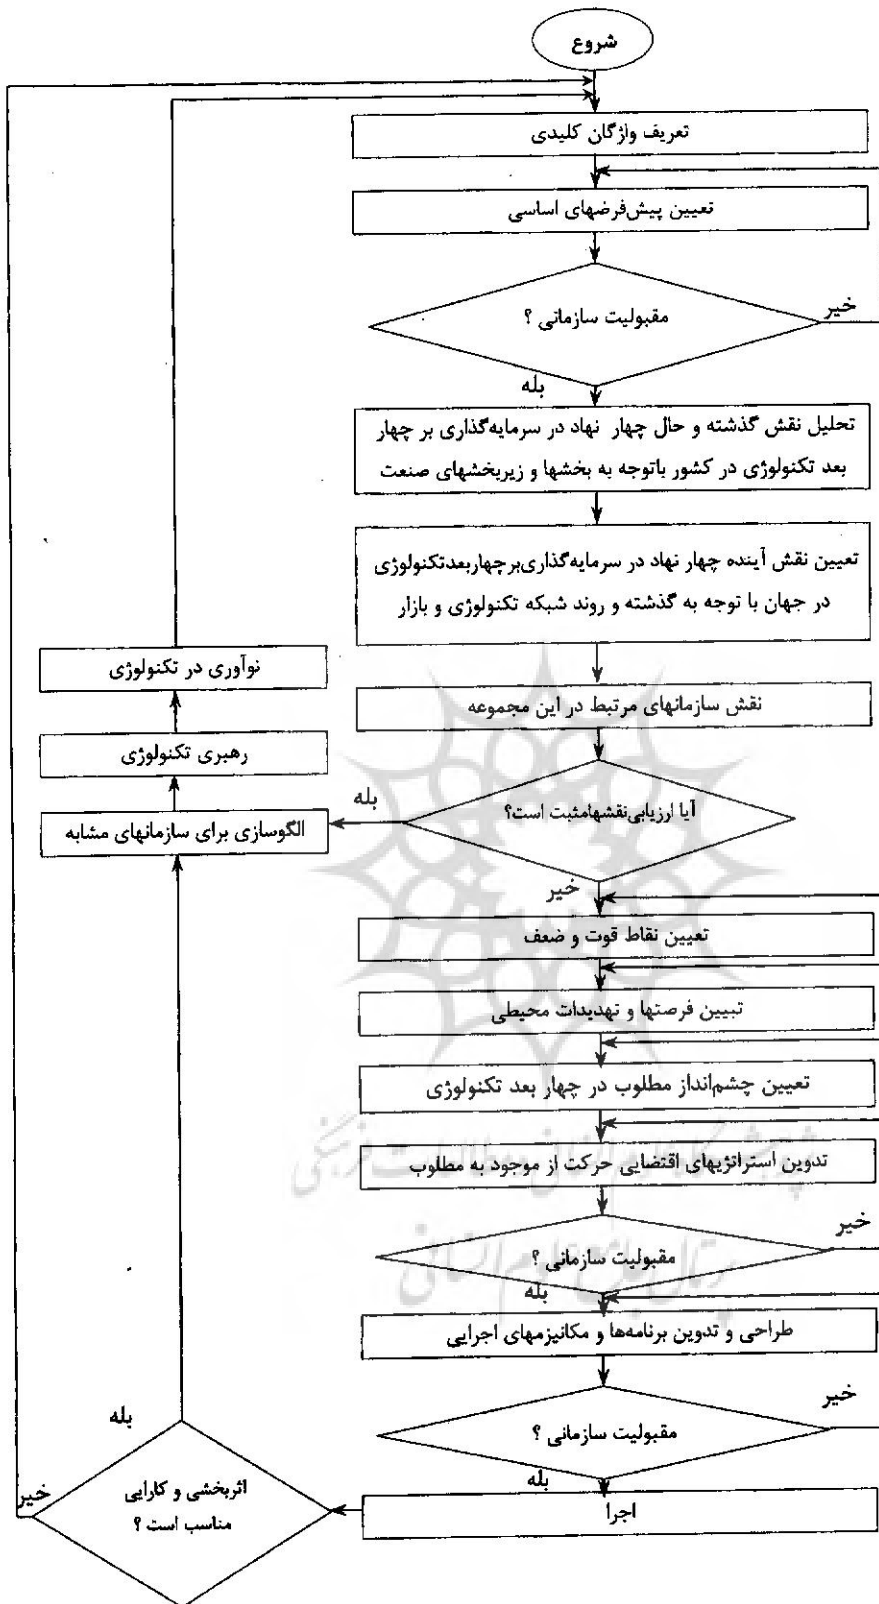 شروع
تعریف واژگان کلیدی
تعیین پیش‌فرضهای اساسی
مقبولیت سازمانی ؟
خیر
بله
تحلیل نقش گذشته و حال چهار نهاد در سرمایه‌گذاری بر چهار
بعد تکنولوژی در کشور باتوجه به بخشها و زیربخشهای صنعت
تعیین نقش آینده چهار نهاد در سرمایه‌گذاری‌برچهاربعدتکنولوژی
در جهان با توجه به گذشته و روند شبکه تکنولوژی و بازار
نقش سازمانهای مرتبط در این مجموعه
آیا ارزیابی‌نقشهامثبت است؟
بله
خیر
نوآوری در تکنولوژی
رهبری تکنولوژی
الگوسازی برای سازمانهای مشابه
تعیین نقاط قوت و ضعف
تبیین فرصتها و تهدیدات محیطی
تعیین چشم‌انداز مطلوب در چهار بعد تکنولوژی
تدوین استراتژیهای اقتضایی حرکت از موجود به مطلوب
مقبولیت سازمانی ؟
خیر
بله
طراحی و تدوین برنامه‌ها و مکانیزمهای اجرایی
مقبولیت سازمانی ؟
خیر
بله
اجرا
اثربخشی و کارایی
مناسب است ؟
بله
خیر
پژوهشگاه علوم انسانی و مطالعات فرهنگی
پرتال جامع علوم انسانی